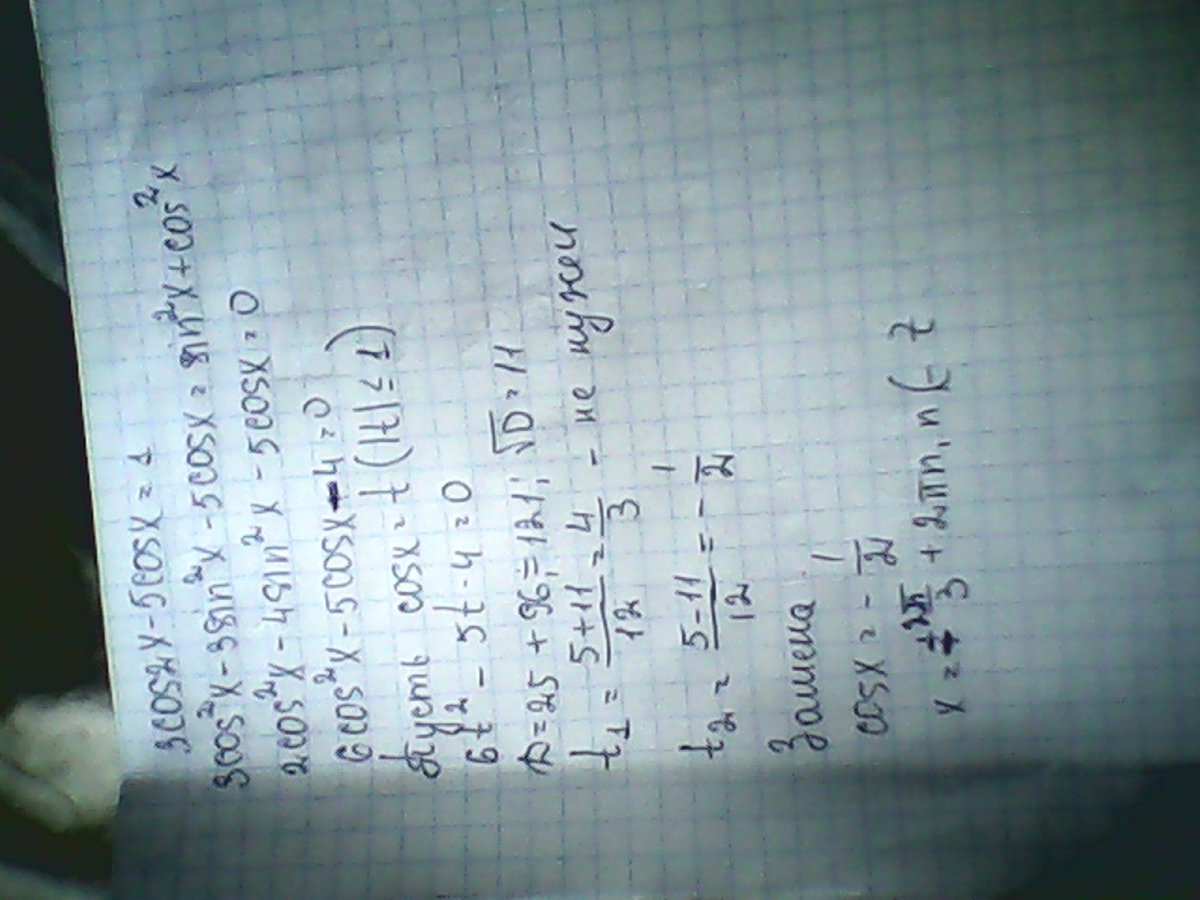 3cos2x-5cosx=1
3cos²x-3sin²x-5cosx=sin²x+cos²x
2cos²x-4sin²x-5cosx=0
6cos²x-5cosx-4=0
Пусть cosx=t (|t|≤1)
6t²-5t-4=0
D=25+96=121; √D=11
t₁=(5+11)/12=4/3 - не нужен
t₂=(5-11)/12=-1/2
Замена
cosx=-1/2
x=±2π/3+2πn, n∈Z